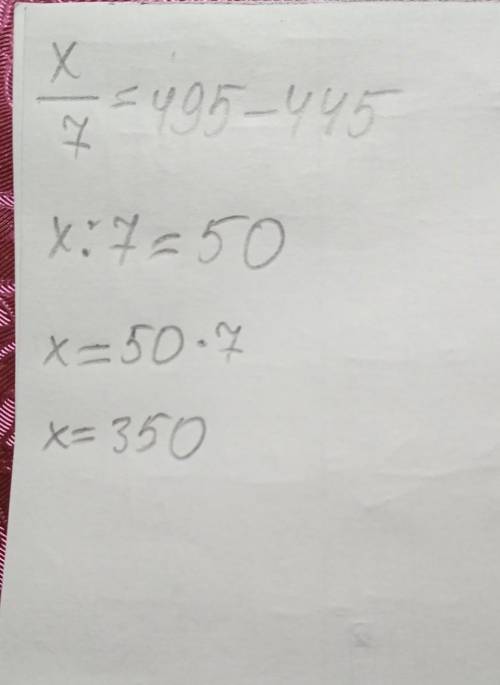 x/7 = 495 - 445
x : 7 = 50
x = 50 · 7
x = 350